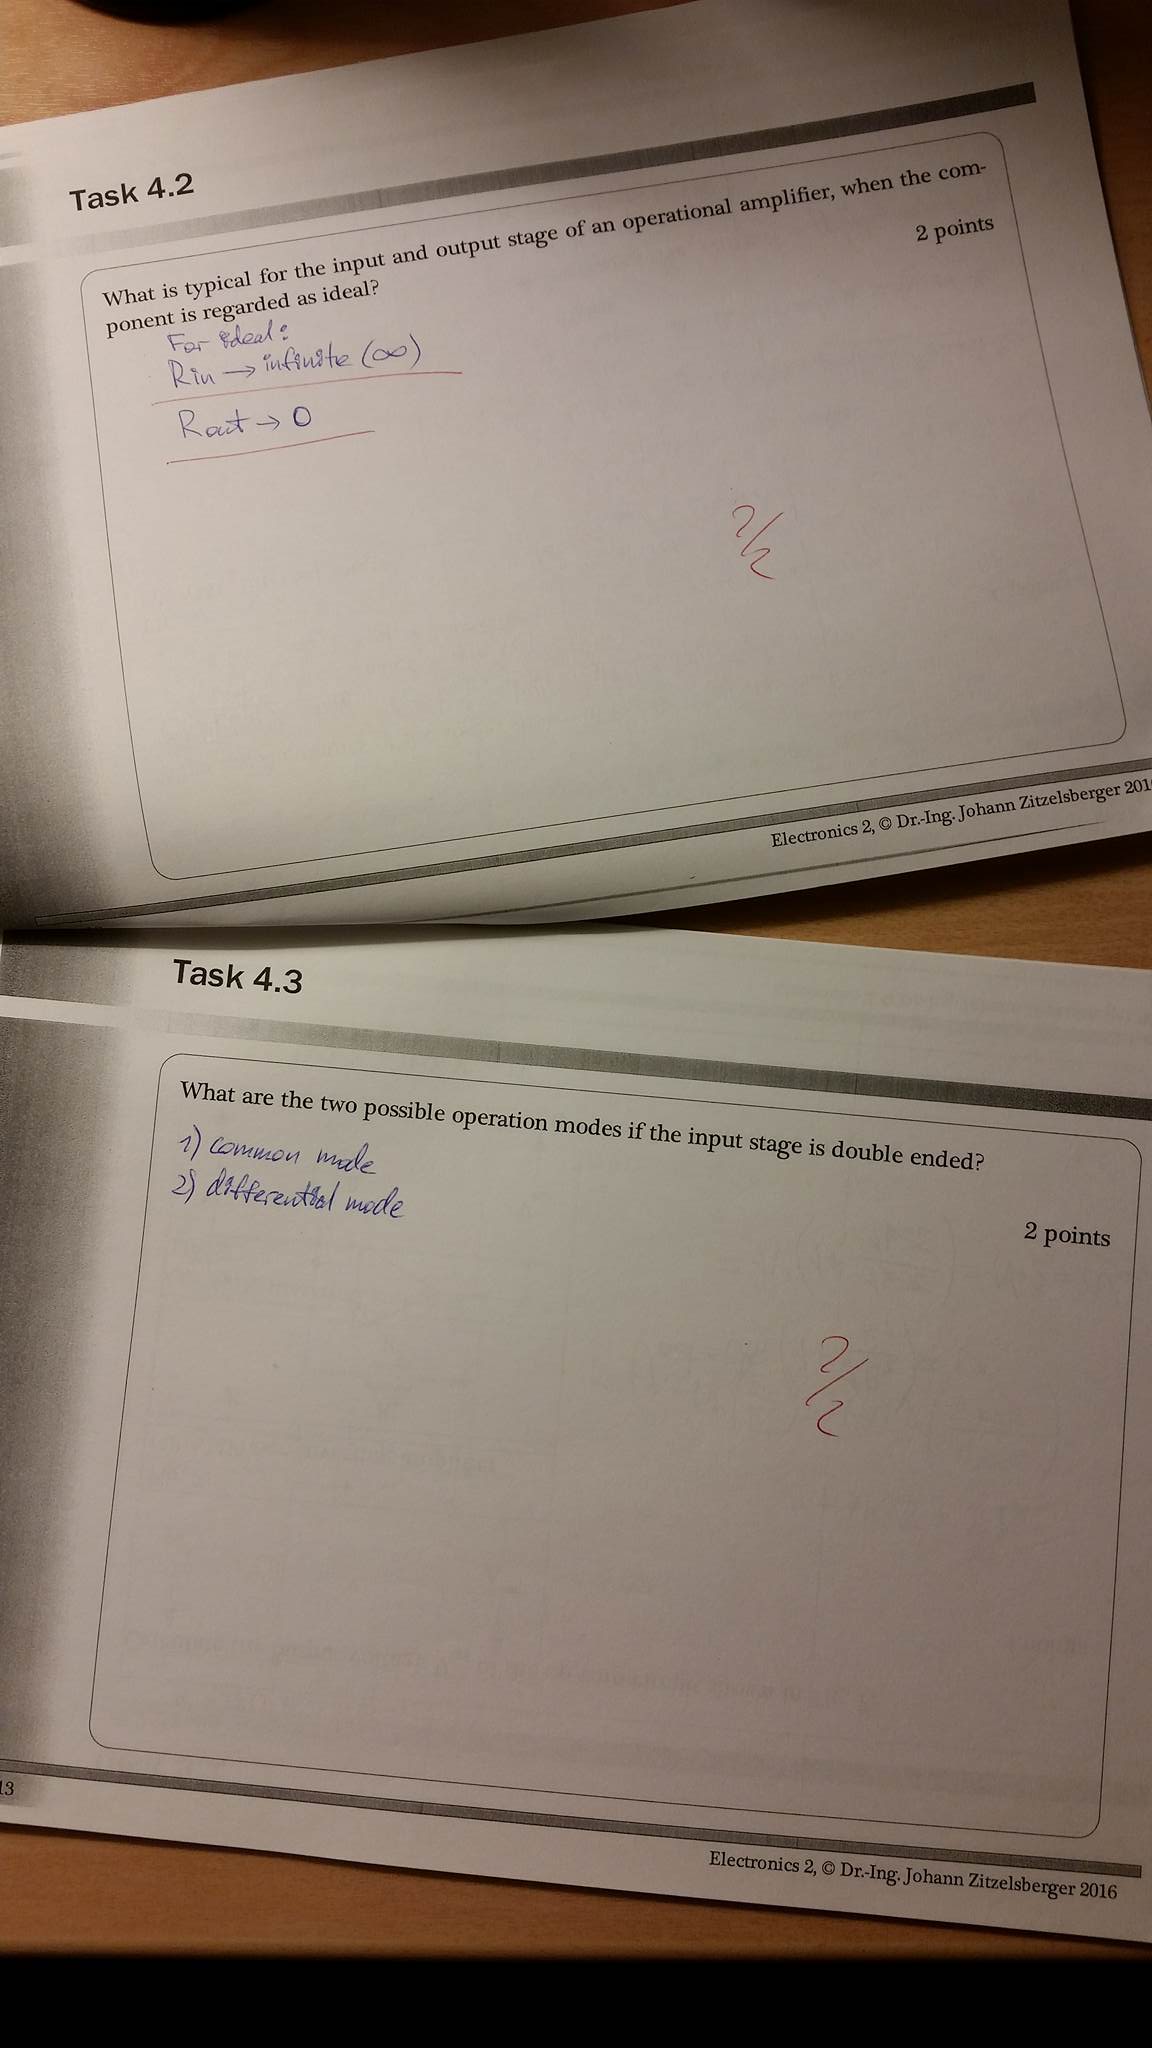 Task 4.2
What is typical for the input and output stage of an operational amplifier, when the com-
ponent is regarded as ideal?
2 points
For ideal:
Rin → infinite (∞)
Rout → 0
2/2
Electronics 2, © Dr.-Ing. Johann Zitzelsberger 201
Task 4.3
What are the two possible operation modes if the input stage is double ended?
1) common mode
2) differential mode
2 points
2/2
13
Electronics 2, © Dr.-Ing. Johann Zitzelsberger 2016